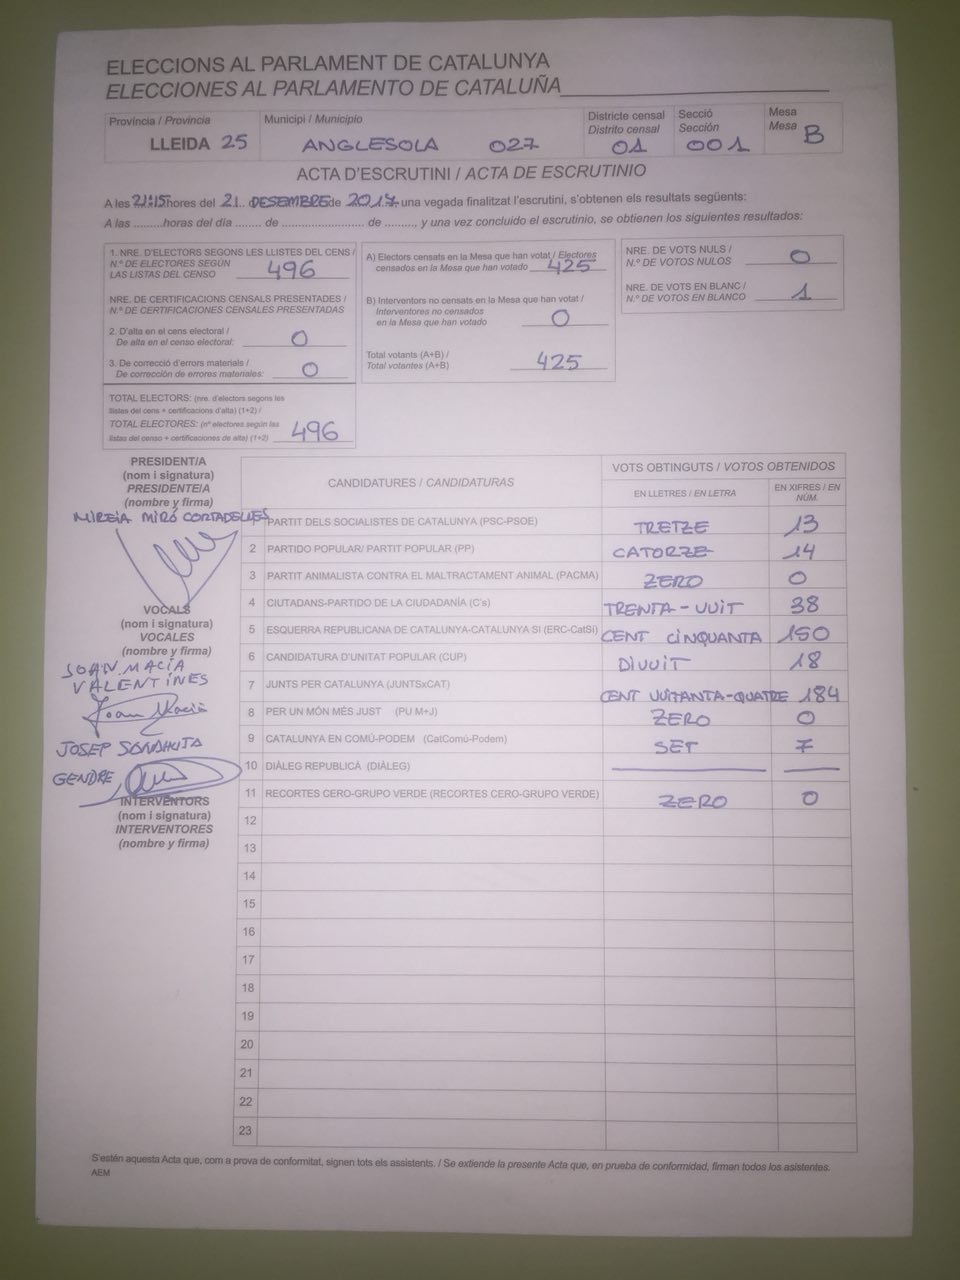 ELECCIONS AL PARLAMENT DE CATALUNYA
ELECCIONES AL PARLAMENTO DE CATALUÑA
Província / Provincia
LLEIDA 25
Municipi / Municipio
ANGLESOLA 027
Districte censal
Distrito censal
01
Secció
Sección
001
Mesa
Mesa
B
ACTA D'ESCRUTINI / ACTA DE ESCRUTINIO
A les 21:15 hores del 21 . DESEMBRE de 2017 una vegada finalitzat l'escrutini, s'obtenen els resultats següents:
A las .........horas del día ........ de ......................... de ........., y una vez concluido el escrutinio, se obtienen los siguientes resultados:
1. NRE. D'ELECTORS SEGONS LES LLISTES DEL CENS /
N.º DE ELECTORES SEGÚN
LAS LISTAS DEL CENSO 496
NRE. DE CERTIFICACIONS CENSALS PRESENTADES /
N.º DE CERTIFICACIONES CENSALES PRESENTADAS
2. D'alta en el cens electoral /
De alta en el censo electoral: 0
3. De correcció d'errors materials /
De corrección de errores materiales: 0
TOTAL ELECTORS: (nre. d'electors segons les
llistes del cens + certificacions d'alta) (1+2) /
TOTAL ELECTORES: (nº electores según las
listas del censo + certificaciones de alta) (1+2) 496
A) Electors censats en la Mesa que han votat / Electores
censados en la Mesa que han votado 425
B) Interventors no censats en la Mesa que han votat /
Interventores no censados
en la Mesa que han votado 0
Total votants (A+B) /
Total votantes (A+B) 425
NRE. DE VOTS NULS /
N.º DE VOTOS NULOS 0
NRE. DE VOTS EN BLANC /
N.º DE VOTOS EN BLANCO 1
PRESIDENT/A
(nom i signatura)
PRESIDENTE/A
(nombre y firma)
MIREIA MIRÓ CORTADELLES
VOCALS
(nom i signatura)
VOCALES
(nombre y firma)
JOAN MACIA
VALENTINES
Joan Macià
JOSEP
GENDRE
INTERVENTORS
(nom i signatura)
INTERVENTORES
(nombre y firma)
CANDIDATURES / CANDIDATURAS
VOTS OBTINGUTS / VOTOS OBTENIDOS
EN LLETRES / EN LETRA
EN XIFRES / EN NÚM.
PARTIT DELS SOCIALISTES DE CATALUNYA (PSC-PSOE) TRETZE 13
2 PARTIDO POPULAR/ PARTIT POPULAR (PP) CATORZE 14
3 PARTIT ANIMALISTA CONTRA EL MALTRACTAMENT ANIMAL (PACMA) ZERO 0
4 CIUTADANS-PARTIDO DE LA CIUDADANÍA (C's) TRENTA-VUIT 38
5 ESQUERRA REPUBLICANA DE CATALUNYA-CATALUNYA SÍ (ERC-CatSí) CENT CINQUANTA 150
6 CANDIDATURA D'UNITAT POPULAR (CUP) DIVUIT 18
7 JUNTS PER CATALUNYA (JUNTSxCAT) CENT VUITANTA-QUATRE 184
8 PER UN MÓN MÉS JUST (PU M+J) ZERO 0
9 CATALUNYA EN COMÚ-PODEM (CatComú-Podem) SET 7
10 DIÀLEG REPUBLICÀ (DIÀLEG)
11 RECORTES CERO-GRUPO VERDE (RECORTES CERO-GRUPO VERDE) ZERO 0
12
13
14
15
16
17
18
19
20
21
22
23
S'estén aquesta Acta que, com a prova de conformitat, signen tots els assistents. / Se extiende la presente Acta que, en prueba de conformidad, firman todos los asistentes.
AEM